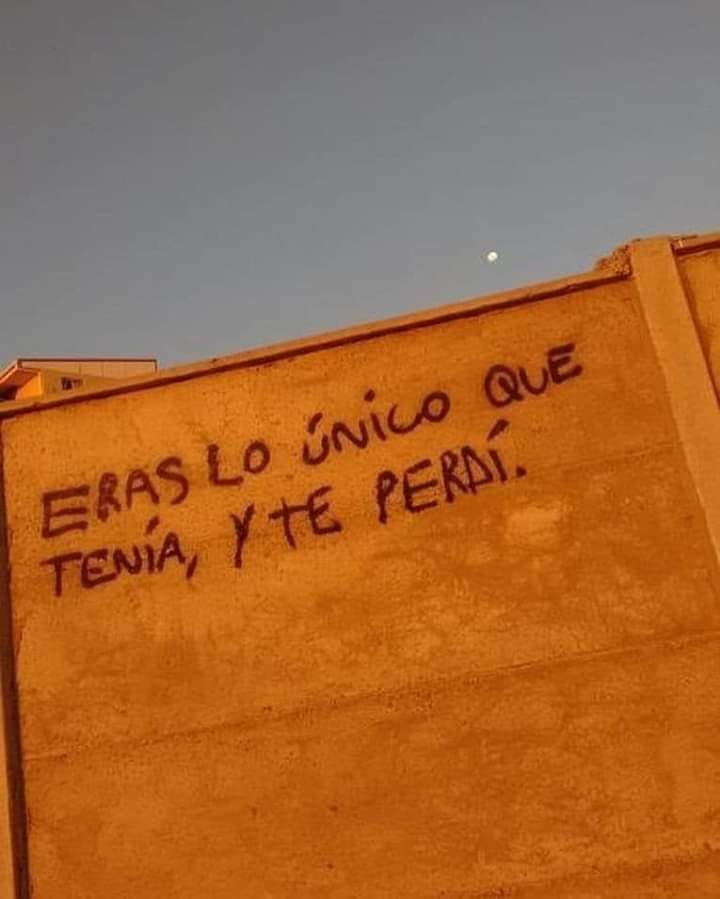 ERAS LO ÚNICO QUE
TENÍA, Y TE PERDÍ.